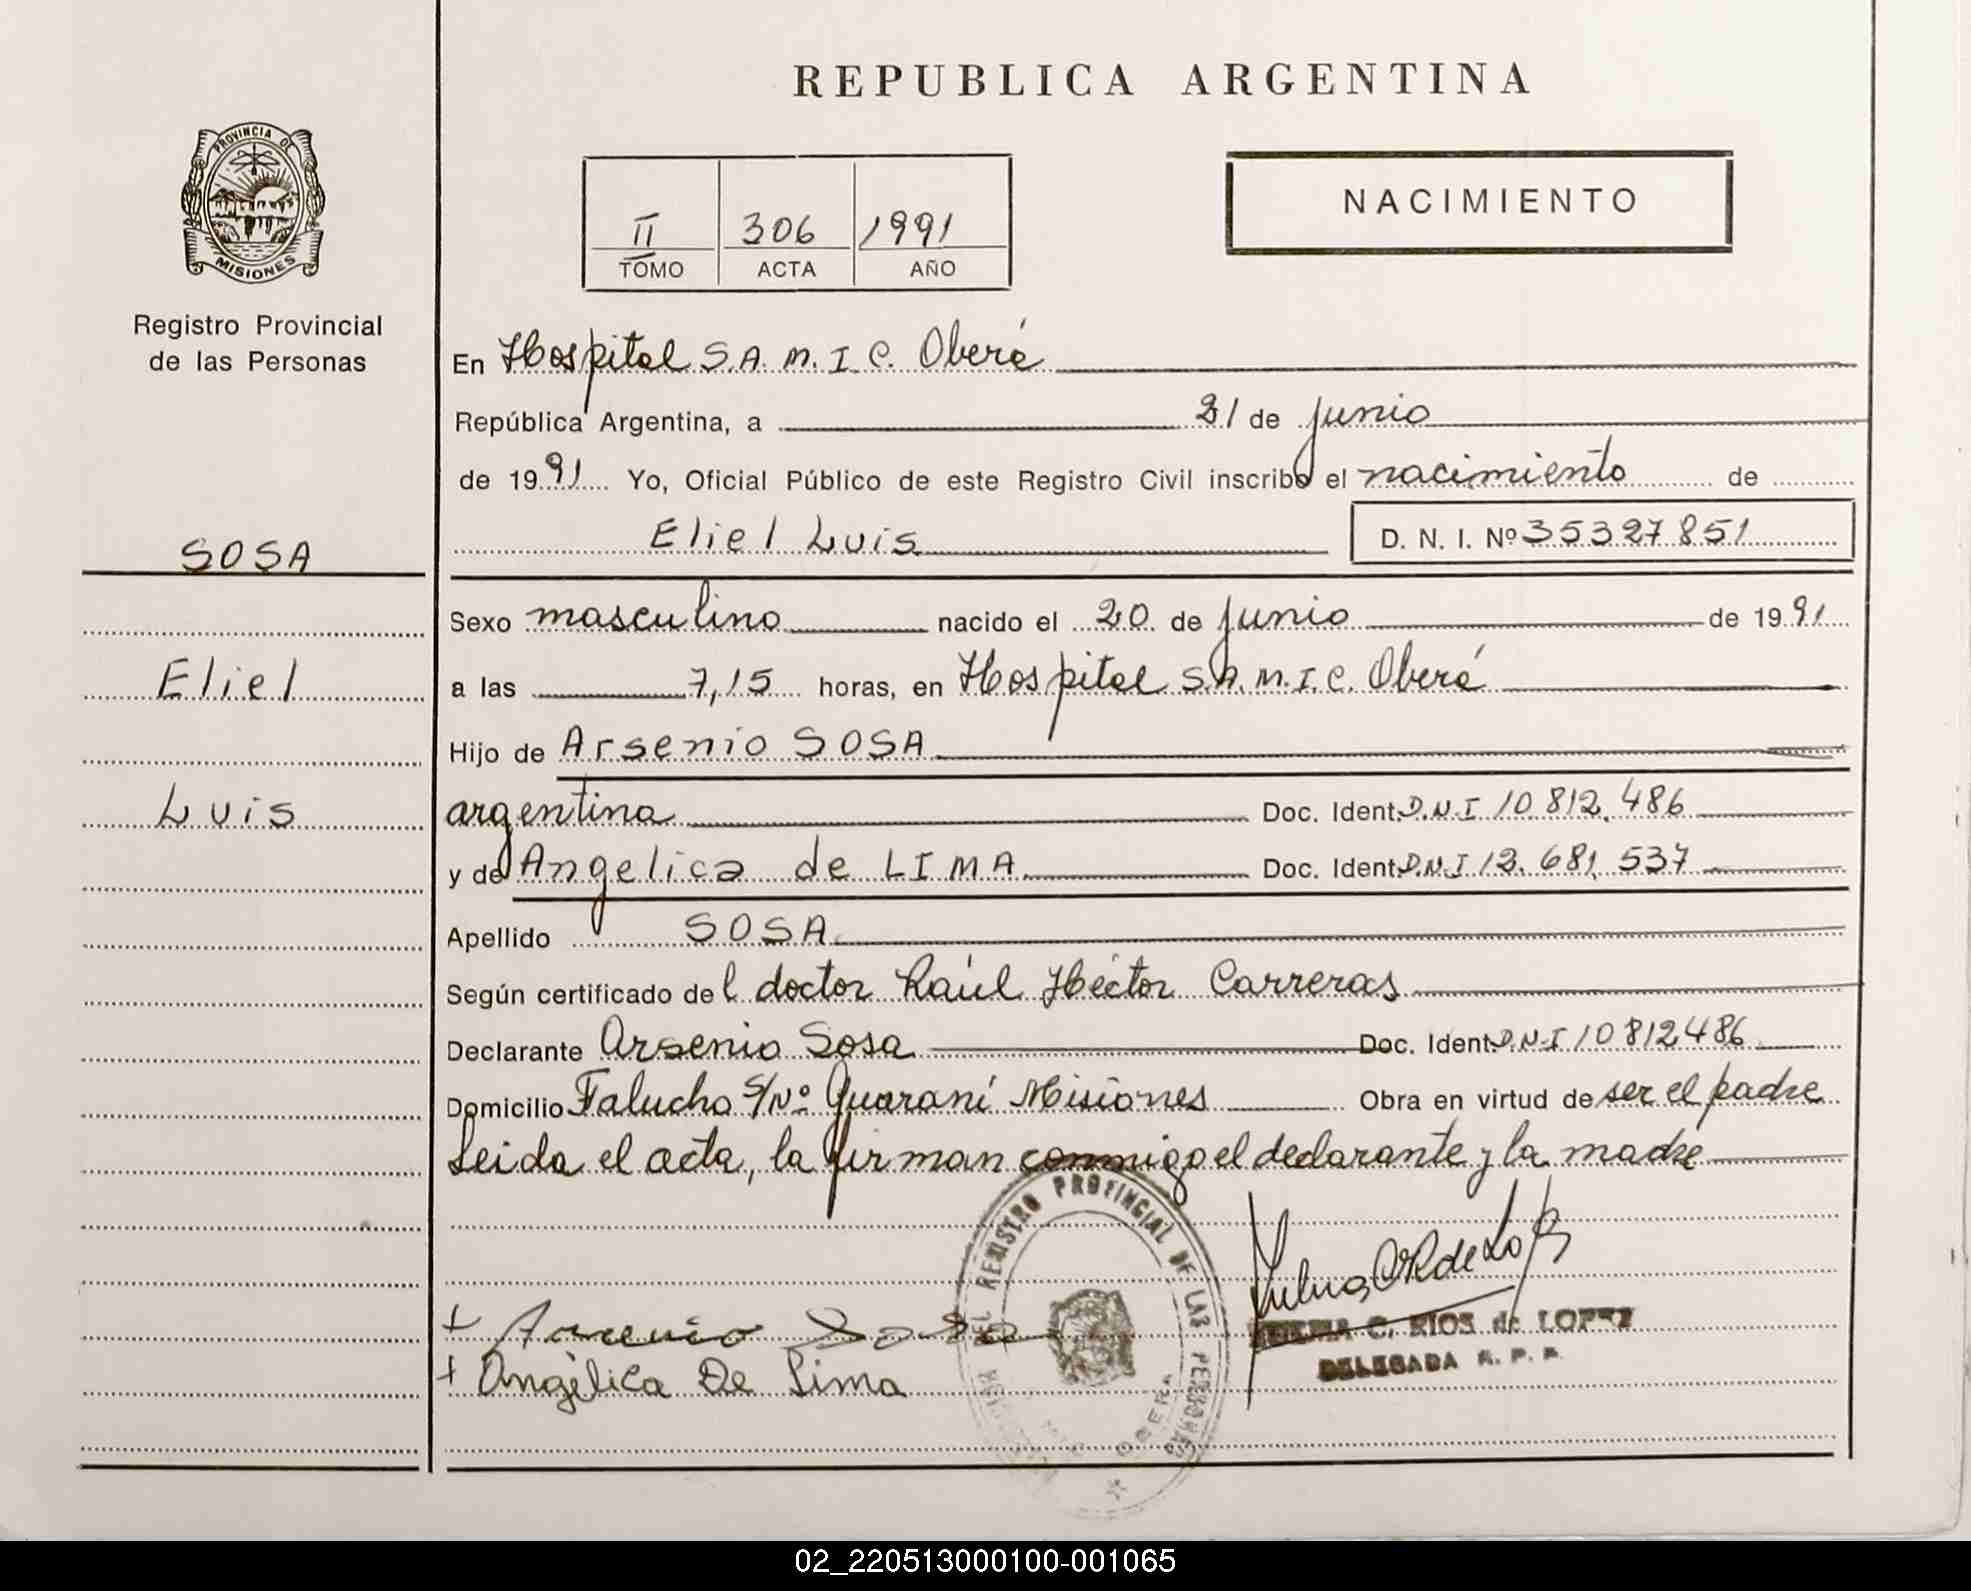 REPUBLICA ARGENTINA
PROVINCIA DE
MISIONES
Registro Provincial
de las Personas
II 306 1991
TOMO ACTA AÑO
NACIMIENTO
En Hospital S.A.M.I.C. Oberá
República Argentina, a 21 de junio
de 1991 Yo, Oficial Público de este Registro Civil inscribo el nacimiento de
Eliel Luis D. N. I. Nº 35327851
SOSA
Eliel
Luis
Sexo masculino nacido el 20 de junio de 1991
a las 7,15 horas, en Hospital S.A.M.I.C. Oberá
Hijo de Arsenio SOSA
argentina Doc. Ident. D.N.I 10.812.486
y de Angelica de LIMA Doc. Ident. D.N.I 12.681.537
Apellido SOSA
Según certificado del doctor Raúl Héctor Carreras
Declarante Arsenio Sosa Doc. Ident. D.N.I 10812486
Domicilio Falucho S/Nº Guaraní Misiones Obra en virtud de ser el padre
Leida el acta, la firman conmigo el declarante y la madre
+ Arsenio Sosa
+ Angélica De Lima
REGISTRO PROVINCIAL DE LAS PERSONAS
OBERA
C. RIOS de LOPEZ
DELEGADA R. P. P.
02_220513000100-001065